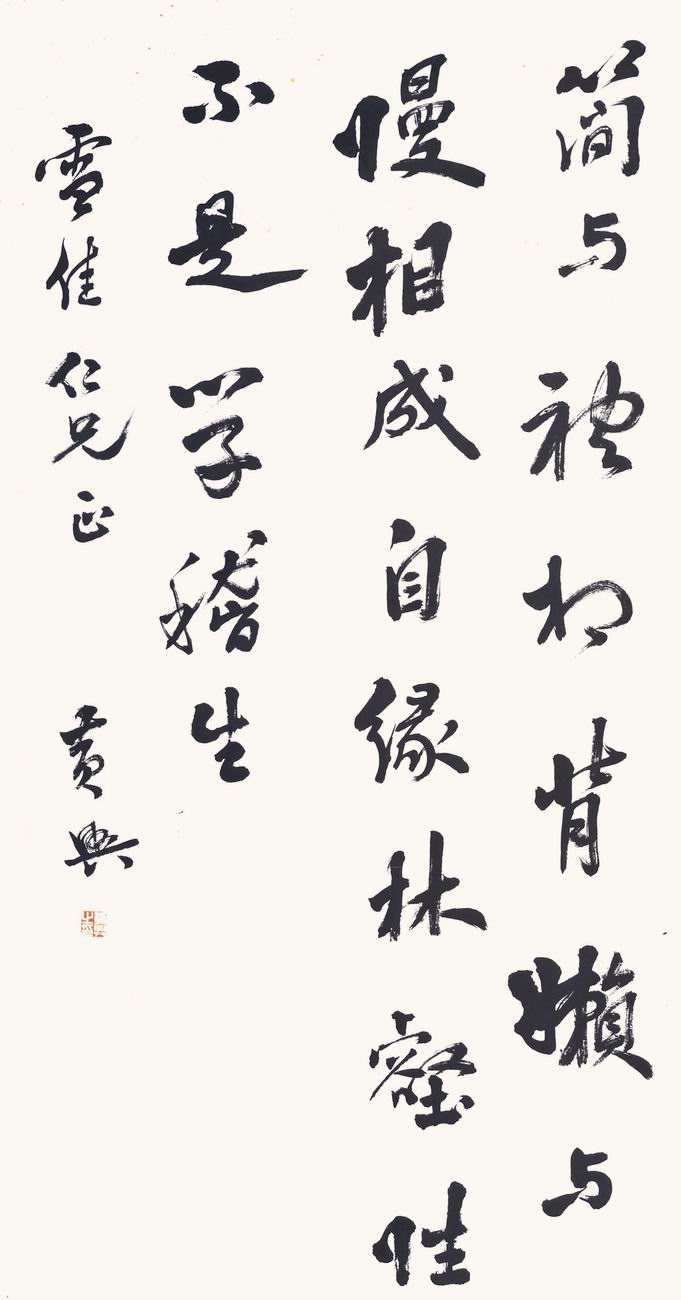 簡与禮相背懶与
慢相成自緣林壑性
不是学稽生
雪佳仁兄正
黃興